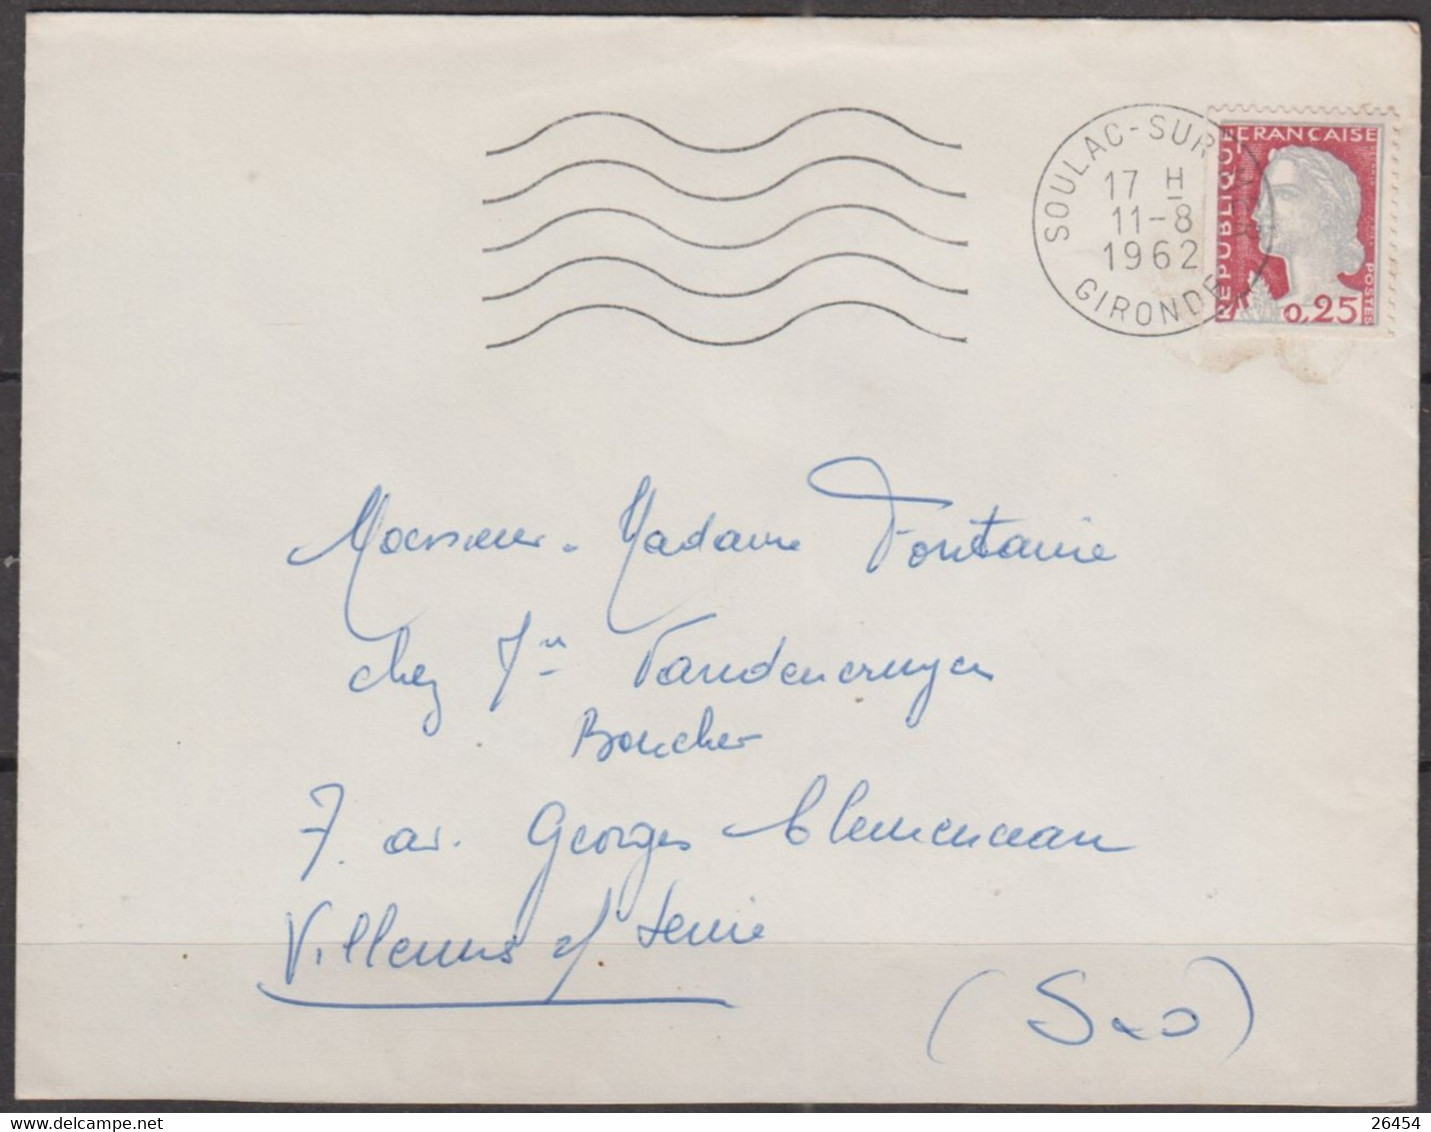 SOULAC-SUR
17 H
11-8
1962
GIRONDE
REPUBLIQUE FRANCAISE
POSTES
0,25
Monsieur - Madame Fontaine
chez Mr Vandencruyen
Boucher
7. av. Georges Clemenceau
Villennes s/ Seine
(S & O)
www.delcampe.net
26454